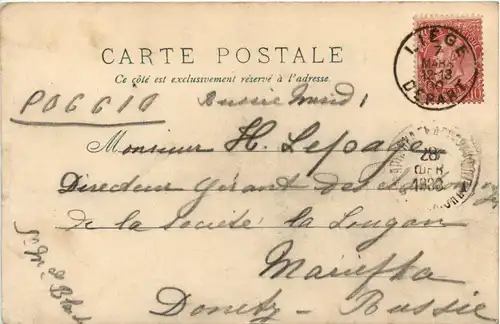 CARTE POSTALE
Ce côté est exclusivement réservé à l'adresse.
LIÉGE
7
MARS
12-13
DÉPART
POGGIO
Russie
Monsieur H. Lepage
Directeur Gérant des
de la Société la Lougan
Marieffka
Donetz - Russie
28
1900